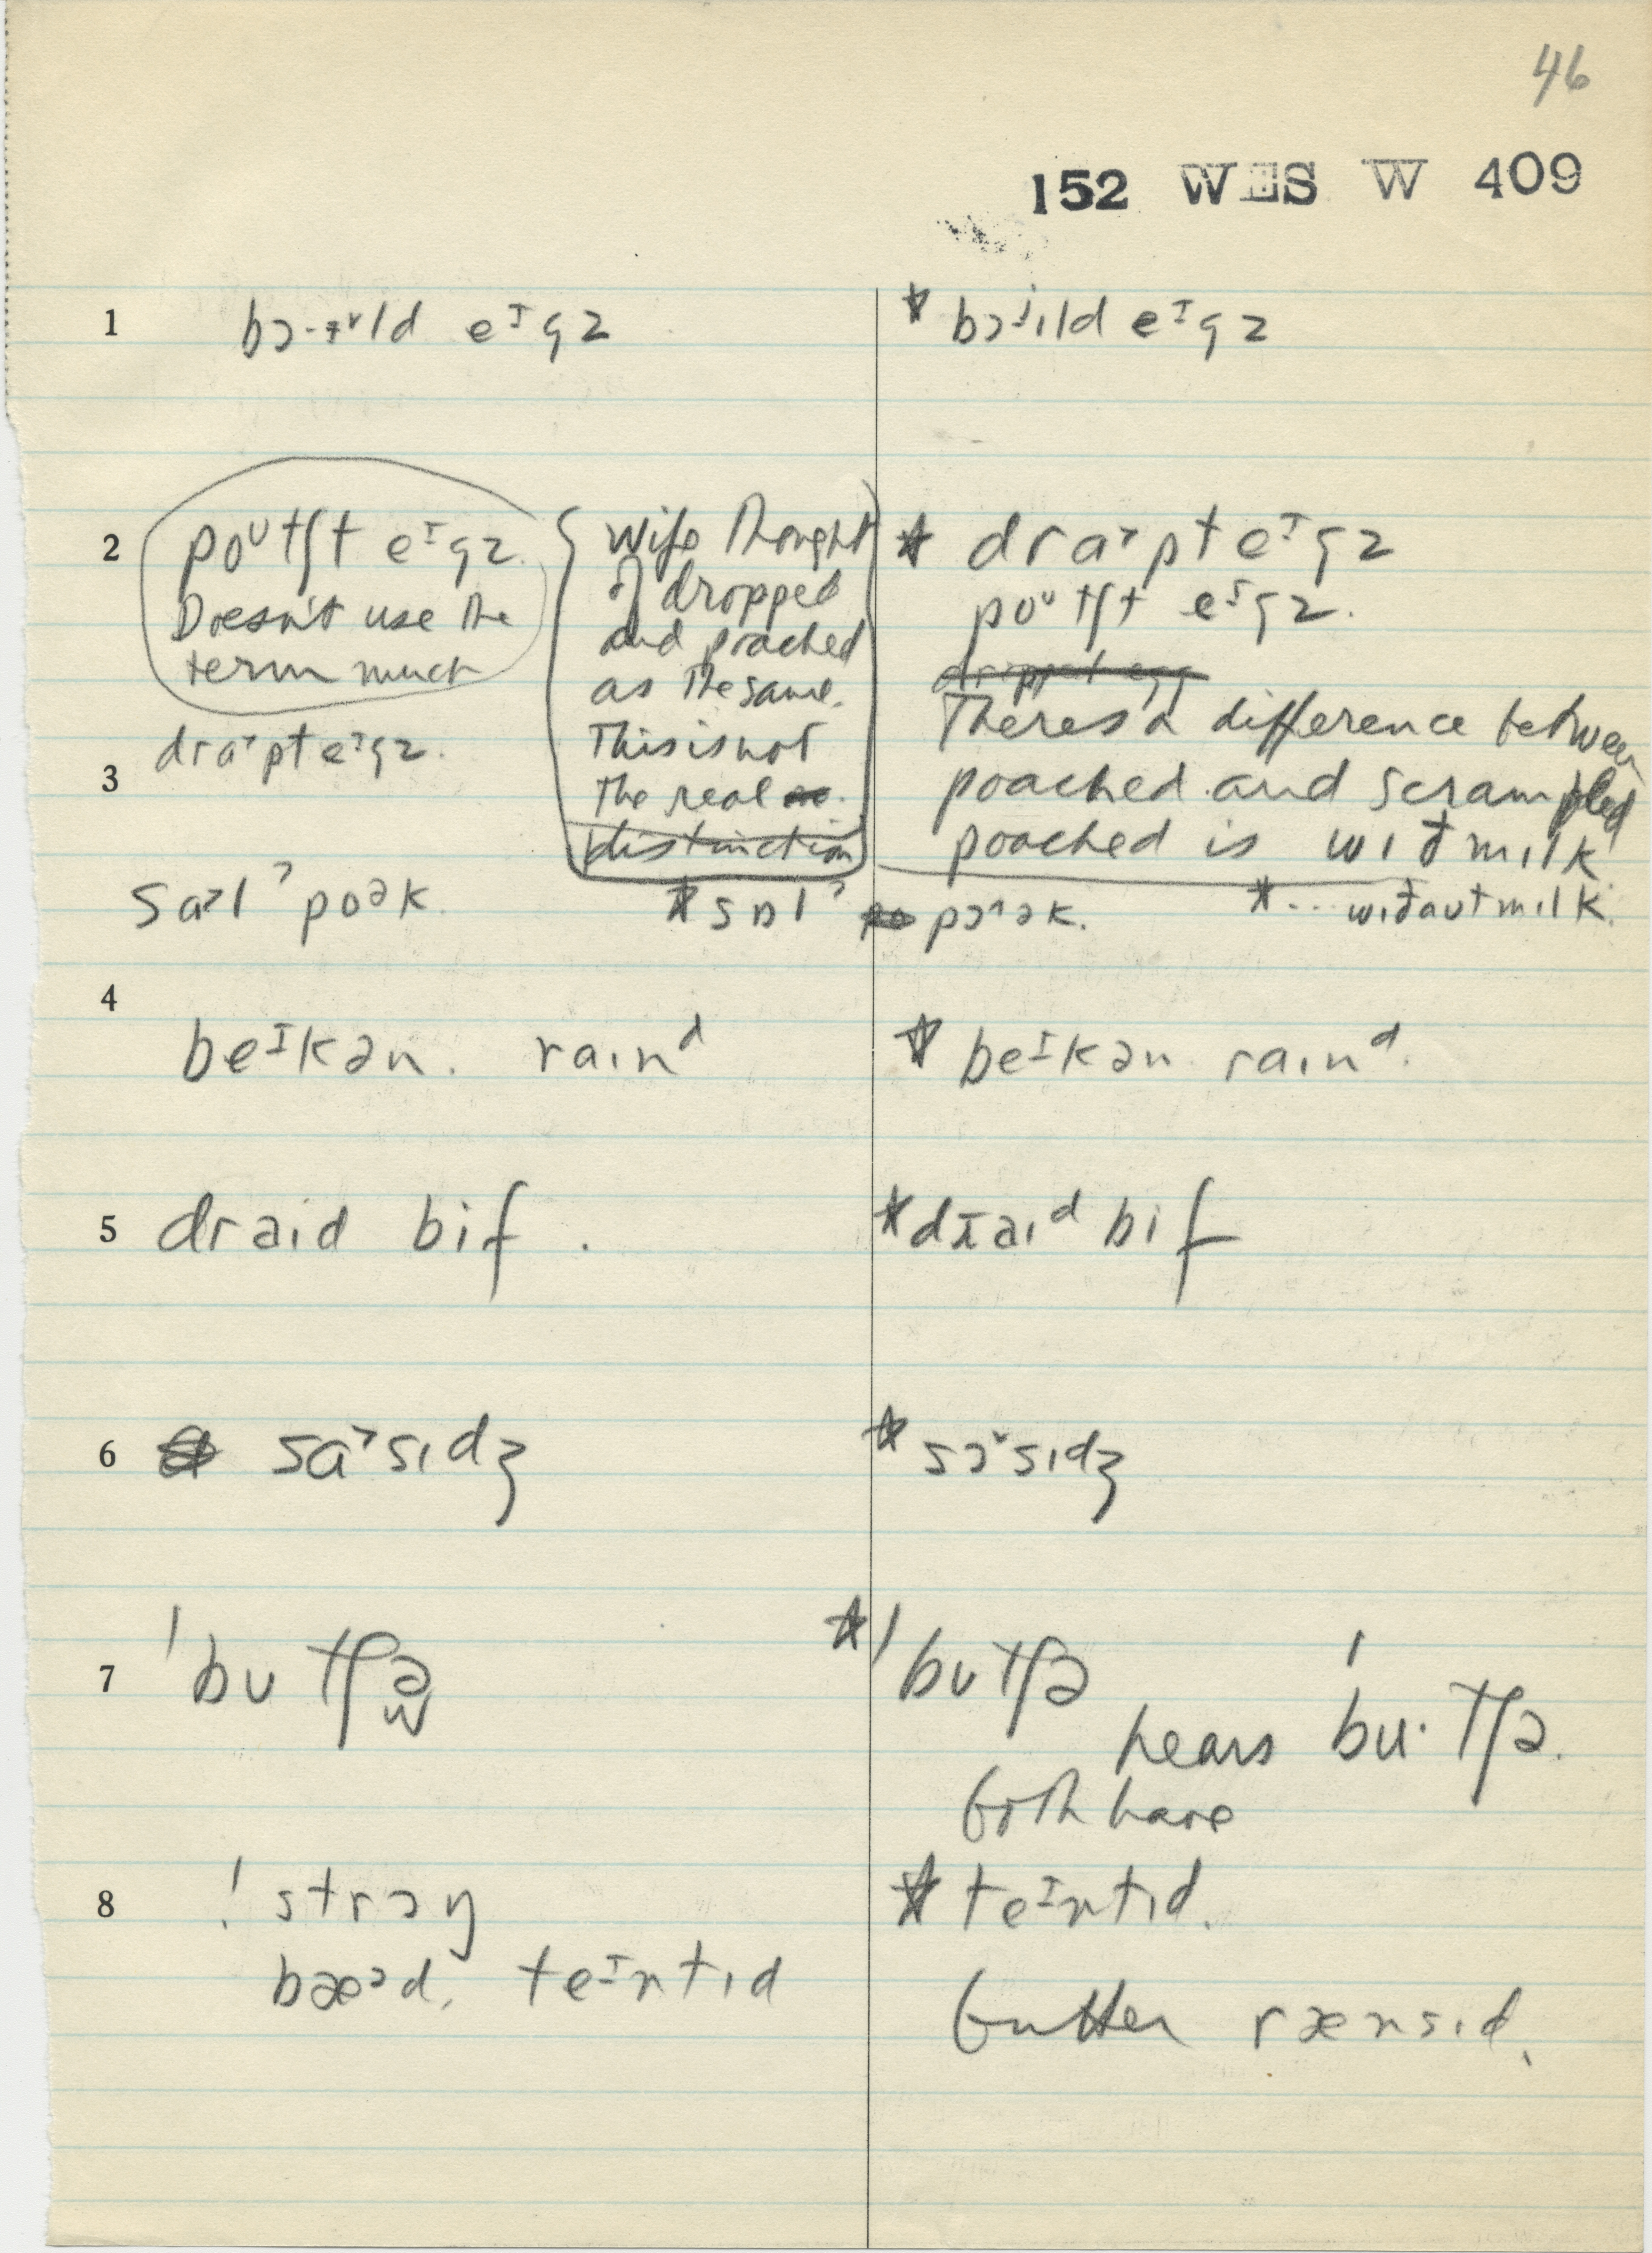 46
152 WES W 409
1 bɔ·ɪ˅ld eᶦgz
* bɔˈild eᶦgz
2 poᶷtʃt eᶦgz.
Doesn't use the
term much
Wife thought
of dropped
and poached
as the same.
This is not
the real
distinction
* dra˃pt eᶦgz
poᶷtʃt eᶦgz.
dropped egg
There's a difference between
poached and scrambled
poached is wɪđ mɪlk
*... wɪđaut mɪlk.
3 dra˃pt eᶦgz.
sa˃lˀ poək.
* sɒlˀ pɔ^ək.
4 beᶦkən. raɪnᵈ
* beᶦkən raɪnᵈ.
5 draɪd bif.
* dɹaɪᵈ bif
6 sa˃sɪdʒ
* sɔ˅sɪdʒ
7 ˈbutʃə
* ˈbutʃə
hears ˈbu·tʃə.
both have
8 ! strɔŋ
bæəd, teᶦntɪd
* teᶦntɪd.
butter rænsɪd.